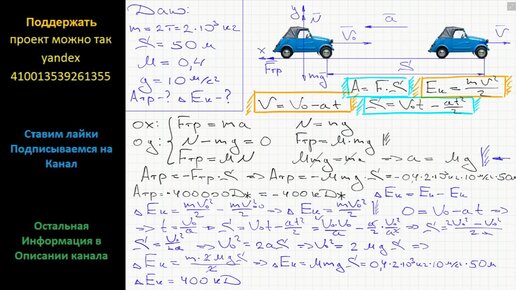 Поддержать
проект можно так
yandex
410013539261355
Ставим лайки
Подписываемся на
Канал
Остальная
Информация в
Описании канала
Дано:
m = 2т = 2·10³ кг
S = 50 м
μ = 0,4
g = 10 м/с²
Aтр - ? ΔEк - ?
y N V₀ a V
x Fтр mg
A = F·S Eк = mV²/2
V = V₀ - at S = V₀t - at²/2
ox: Fтр = ma N = mg
oy: N - mg = 0 Fтр = μ·mg
Fтр = μN μmg = ma => a = μg
Aтр = -Fтр·S => Aтр = -μmg·S = -0,4·2·10³кг·10м/с²·50м
Aтр = -400000Дж = -400кДж ΔEк = Eк - Eк
ΔEк = mV²/2 - mV₀²/2 => ΔEк = mV₀²/2 0 = V₀ - at =>
=> t = V₀/a => S = V₀t - at²/2 = V₀²/a - a/2 V₀²/a² => S = 2V₀² - V₀²/2a
S = V₀²/2a => V₀² = 2aS => V₀² = 2μgS =>
ΔEк = m·2μgS/2 => ΔEк = μmgS = 0,4·2·10³кг·10м/с²·50м
ΔEк = 400кД